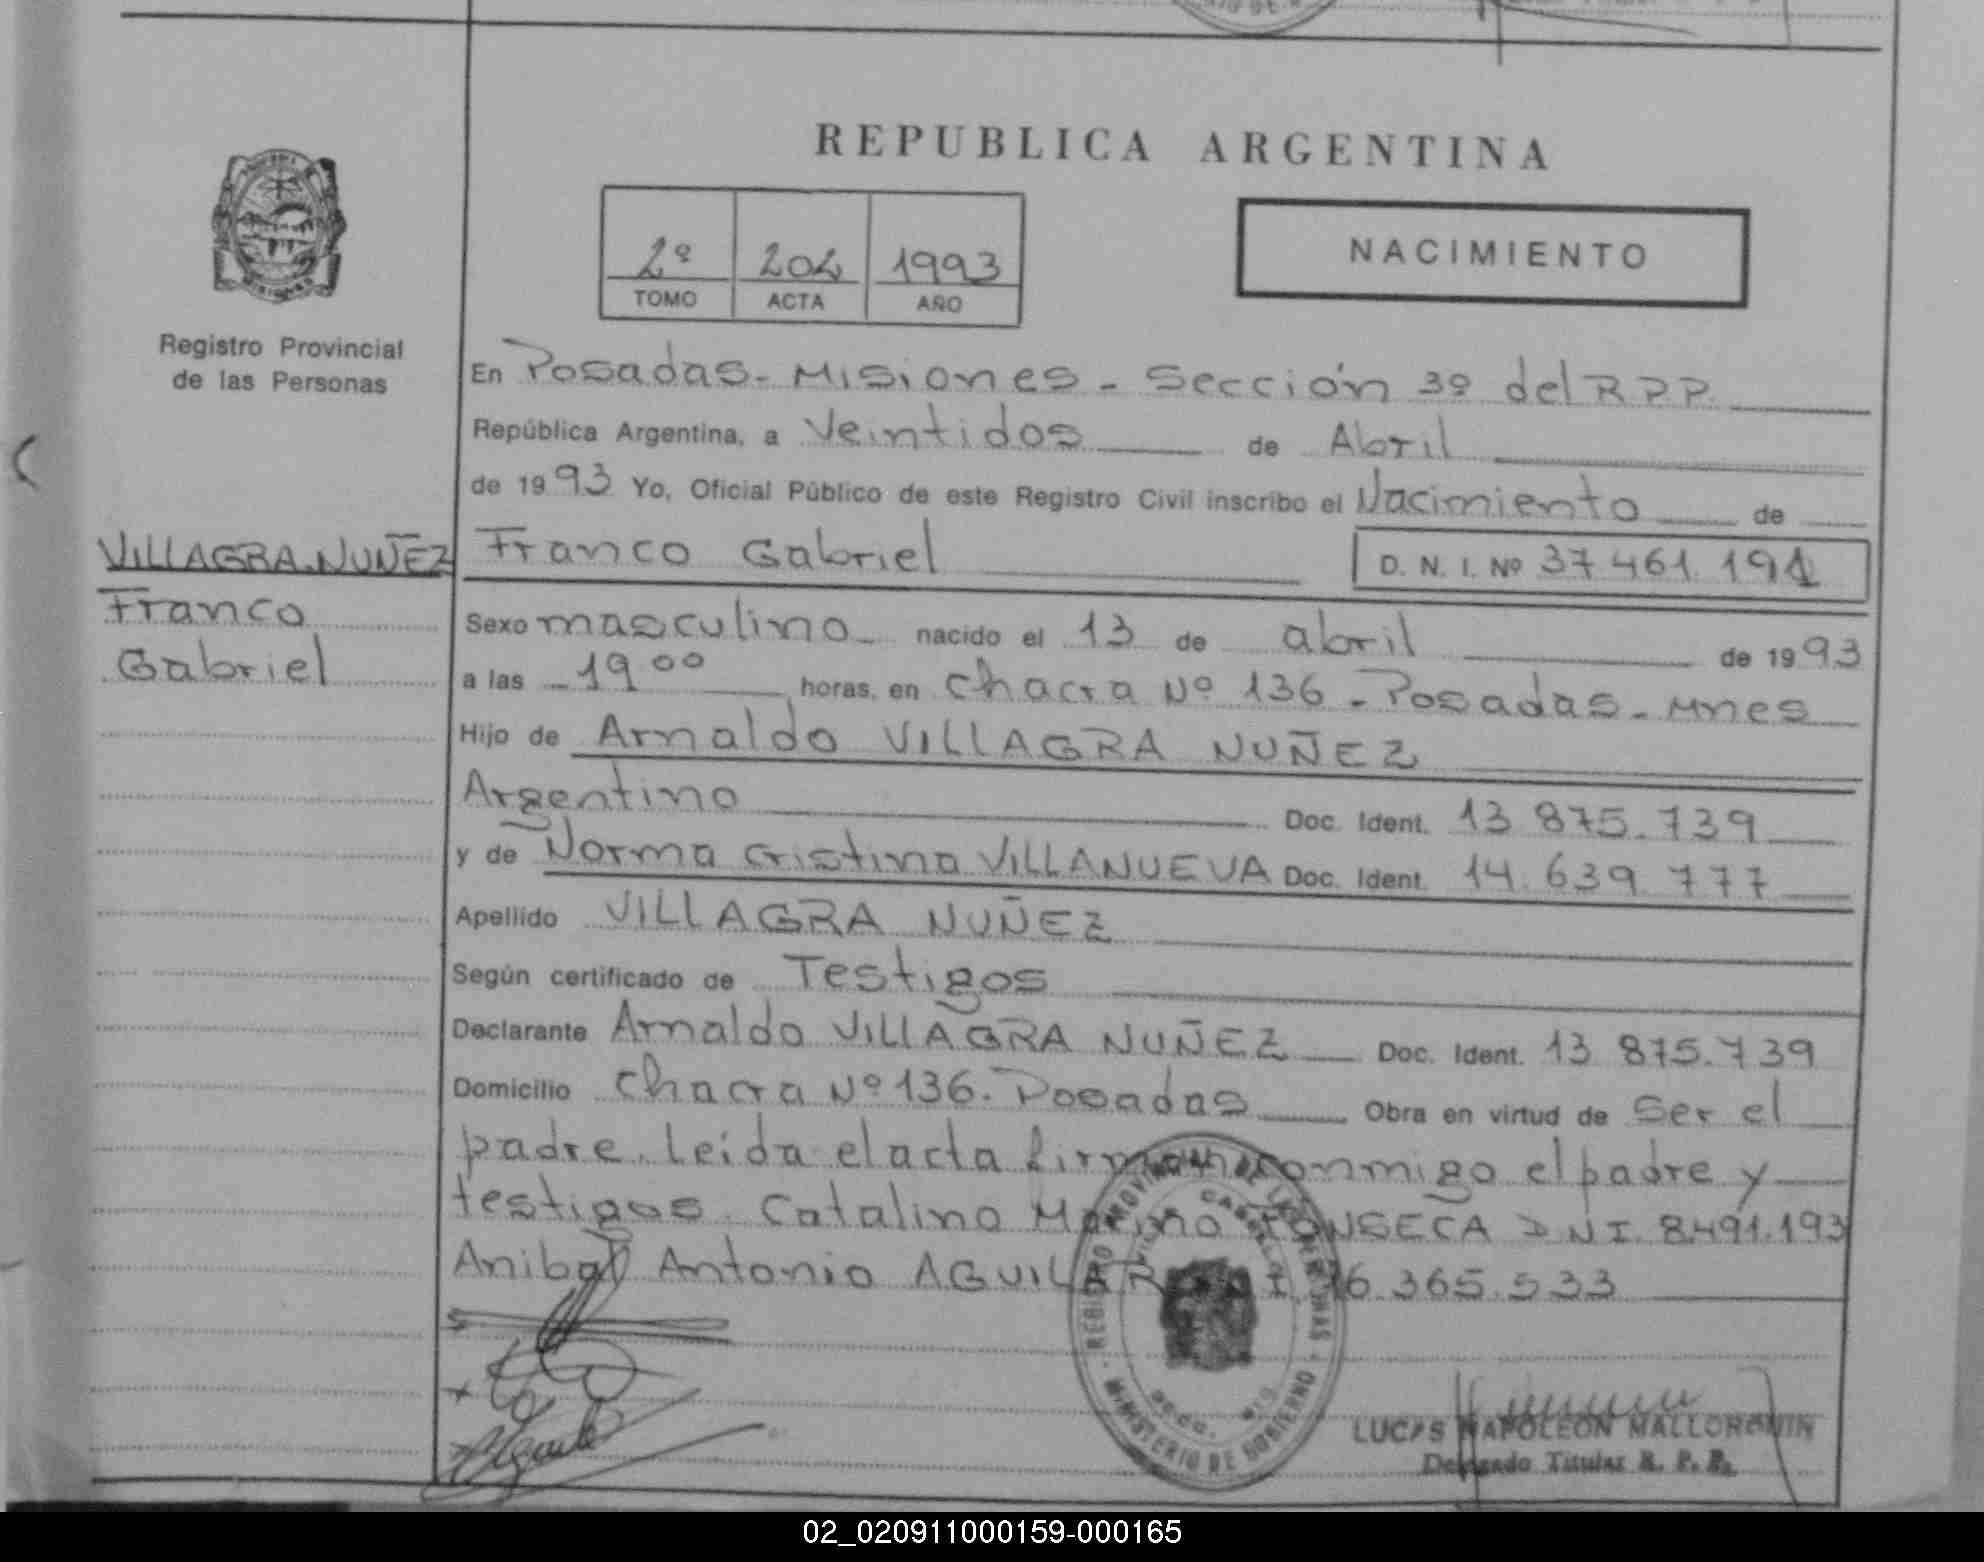 REPUBLICA ARGENTINA
2º 204 1993
TOMO ACTA AÑO
NACIMIENTO
Registro Provincial
de las Personas
VILLAGRA NUÑEZ
Franco
Gabriel
En Posadas - Misiones - Sección 3º del R P P.
República Argentina, a Veintidos de Abril
de 1993 Yo, Oficial Público de este Registro Civil inscribo el Nacimiento de
Franco Gabriel D. N. I. Nº 37 461. 191
Sexo masculino nacido el 13 de abril de 1993
a las 19 00 horas, en Chacra Nº 136 - Posadas - Mnes
Hijo de Arnaldo VILLAGRA NUÑEZ
Argentino Doc. Ident. 13 875.739
y de Norma Cristina VILLANUEVA Doc. Ident. 14.639.777
Apellido VILLAGRA NUÑEZ
Según certificado de Testigos
Declarante Arnaldo VILLAGRA NUÑEZ Doc. Ident. 13 875.739
Domicilio Chacra Nº 136. Posadas Obra en virtud de Ser el
padre. Leída el acta firman conmigo el padre y
testigos. Catalino Marino FONSECA D N I. 8.491.193
Anibal Antonio AGUILAR 16.365.533
REGISTRO PROVINCIAL DE LAS PERSONAS
MINISTERIO DE GOBIERNO
LUCAS NAPOLEON MALLORQUIN
Delegado Titular R. P. P.
02_020911000159-000165